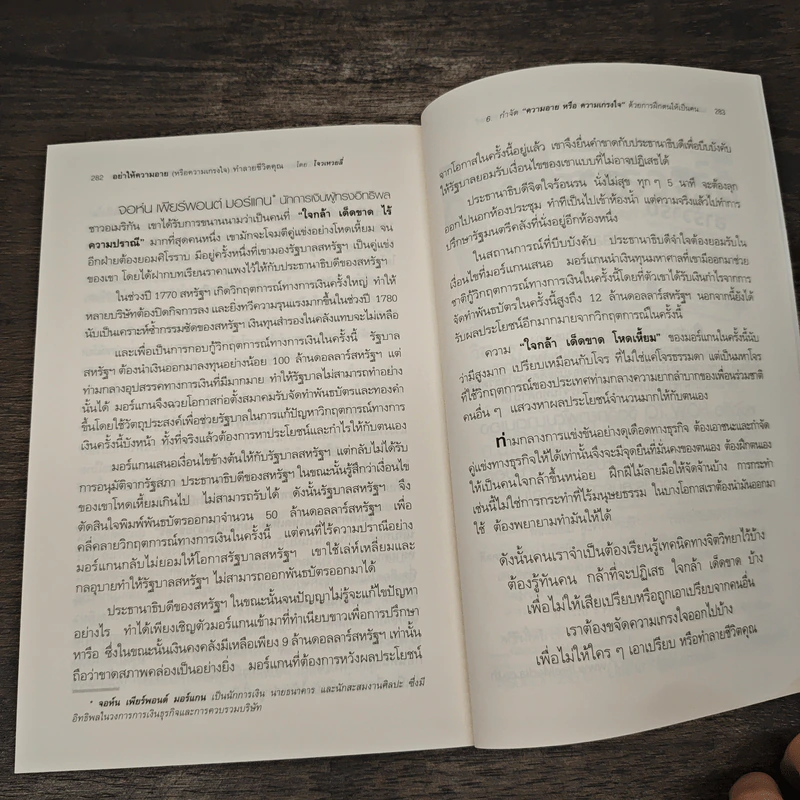 282 อย่าให้ความอาย (หรือความเกรงใจ) ทำลายชีวิตคุณ โดย โจวเหวยลี่
จอห์น เพียร์พอนต์ มอร์แกน* นักการเงินผู้ทรงอิทธิพล
ชาวอเมริกัน เขาได้รับการขนานนามว่าเป็นคนที่ “ใจกล้า เด็ดขาด ไร้
ความปรานี” มากที่สุดคนหนึ่ง เขามักจะโจมตีคู่แข่งอย่างโหดเหี้ยม จน
อีกฝ่ายต้องยอมศิโรราบ มีอยู่ครั้งหนึ่งที่เขามองรัฐบาลสหรัฐฯ เป็นคู่แข่ง
ของเขา โดยได้ฝากบทเรียนราคาแพงไว้ให้กับประธานาธิบดีของสหรัฐฯ
ในช่วงปี 1770 สหรัฐฯ เกิดวิกฤตการณ์ทางการเงินครั้งใหญ่ ทำให้
หลายบริษัทต้องปิดกิจการลง และยิ่งทวีความรุนแรงมากขึ้นในช่วงปี 1780
นับเป็นเคราะห์ซ้ำกรรมซัดของสหรัฐฯ เงินทุนสำรองในคลังแทบจะไม่เหลือ
และเพื่อเป็นการกอบกู้วิกฤตการณ์ทางการเงินในครั้งนี้ รัฐบาล
สหรัฐฯ ต้องนำเงินออกมาลงทุนอย่างน้อย 100 ล้านดอลลาร์สหรัฐฯ แต่
ท่ามกลางอุปสรรคทางการเงินที่มีมากมาย ทำให้รัฐบาลไม่สามารถทำอย่าง
นั้นได้ มอร์แกนจึงฉวยโอกาสก่อตั้งสมาคมรับจัดทำพันธบัตรและทองคำ
ขึ้นโดยใช้วัตถุประสงค์เพื่อช่วยรัฐบาลในการแก้ปัญหาวิกฤตการณ์ทางการ
เงินครั้งนี้บังหน้า ทั้งที่จริงแล้วต้องการหาประโยชน์และกำไรให้กับตนเอง
มอร์แกนเสนอเงื่อนไขข้างต้นให้กับรัฐบาลสหรัฐฯ แต่กลับไม่ได้รับ
การอนุมัติจากรัฐสภา ประธานาธิบดีของสหรัฐฯ ในขณะนั้นรู้สึกว่าเงื่อนไข
ของเขาโหดเหี้ยมเกินไป ไม่สามารถรับได้ ดังนั้นรัฐบาลสหรัฐฯ จึง
ตัดสินใจพิมพ์พันธบัตรออกมาจำนวน 50 ล้านดอลลาร์สหรัฐฯ เพื่อ
คลี่คลายวิกฤตการณ์ทางการเงินในครั้งนี้ แต่คนที่ไร้ความปรานีอย่าง
มอร์แกนกลับไม่ยอมให้โอกาสรัฐบาลสหรัฐฯ เขาใช้เล่ห์เหลี่ยมและ
กลอุบายทำให้รัฐบาลสหรัฐฯ ไม่สามารถออกพันธบัตรออกมาได้
ประธานาธิบดีของสหรัฐฯ ในขณะนั้นจนปัญญาไม่รู้จะแก้ไขปัญหา
อย่างไร ทำได้เพียงเชิญตัวมอร์แกนเข้ามาที่ทำเนียบขาวเพื่อการปรึกษา
หารือ ซึ่งในขณะนั้นเงินคงคลังมีเหลือเพียง 9 ล้านดอลลาร์สหรัฐฯ เท่านั้น
ถือว่าขาดสภาพคล่องเป็นอย่างยิ่ง มอร์แกนที่ต้องการหวังผลประโยชน์
* จอห์น เพียร์พอนต์ มอร์แกน เป็นนักการเงิน นายธนาคาร และนักสะสมงานศิลปะ ซึ่งมี
อิทธิพลในวงการการเงินธุรกิจและการควบรวมบริษัท
6 กำจัด “ความอาย หรือ ความเกรงใจ” ด้วยการฝึกตนให้เป็นคน... 283
จากโอกาสในครั้งนี้อยู่แล้ว เขาจึงยื่นคำขาดกับประธานาธิบดีเพื่อบีบบังคับ
ให้รัฐบาลยอมรับเงื่อนไขของเขาแบบที่ไม่อาจปฏิเสธได้
ประธานาธิบดีจิตใจร้อนรน นั่งไม่สุข ทุก ๆ 5 นาที จะต้องลุก
ออกไปนอกห้องประชุม ทำทีเป็นไปเข้าห้องน้ำ แต่ความจริงแล้วไปทำการ
ปรึกษารัฐมนตรีคลังที่นั่งอยู่อีกห้องหนึ่ง
ในสถานการณ์ที่บีบบังคับ ประธานาธิบดีจำใจต้องยอมรับใน
เงื่อนไขที่มอร์แกนเสนอ มอร์แกนนำเงินทุนมหาศาลที่เขามีออกมาช่วย
ชาติกู้วิกฤตการณ์ทางการเงินในครั้งนี้โดยที่ตัวเขาได้รับเงินกำไรจากการ
จัดทำพันธบัตรในครั้งนี้สูงถึง 12 ล้านดอลลาร์สหรัฐฯ นอกจากนี้ยังได้
รับผลประโยชน์อีกมากมายจากวิกฤตการณ์ในครั้งนี้
ความ “ใจกล้า เด็ดขาด โหดเหี้ยม” ของมอร์แกนในครั้งนี้นับ
ว่ามีสูงมาก เปรียบเหมือนกับโจร ที่ไม่ใช่แค่โจรธรรมดา แต่เป็นมหาโจร
ที่ใช้วิกฤตการณ์ของประเทศท่ามกลางความยากลำบากของเพื่อนร่วมชาติ
คนอื่น ๆ แสวงหาผลประโยชน์จำนวนมากให้กับตนเอง
ท่ามกลางการแข่งขันอย่างดุเดือดทางธุรกิจ ต้องเอาชนะและกำจัด
คู่แข่งทางธุรกิจให้ได้เท่านั้นจึงจะมีจุดยืนที่มั่นคงของตนเอง ต้องฝึกตนเอง
ให้เป็นคนใจกล้าขึ้นหน่อย ฝึกฝีไม้ลายมือให้จัดจ้านบ้าง การกระทำ
เช่นนี้ไม่ใช่การกระทำที่ไร้มนุษยธรรม ในบางโอกาสเราต้องนำมันออกมา
ใช้ ต้องพยายามทำมันให้ได้
ดังนั้นคนเราจำเป็นต้องเรียนรู้เทคนิคทางจิตวิทยาไว้บ้าง
ต้องรู้ทันคน กล้าที่จะปฏิเสธ ใจกล้า เด็ดขาด บ้าง
เพื่อไม่ให้เสียเปรียบหรือถูกเอาเปรียบจากคนอื่น
เราต้องขจัดความเกรงใจออกไปบ้าง
เพื่อไม่ให้ใคร ๆ เอาเปรียบ หรือทำลายชีวิตคุณ